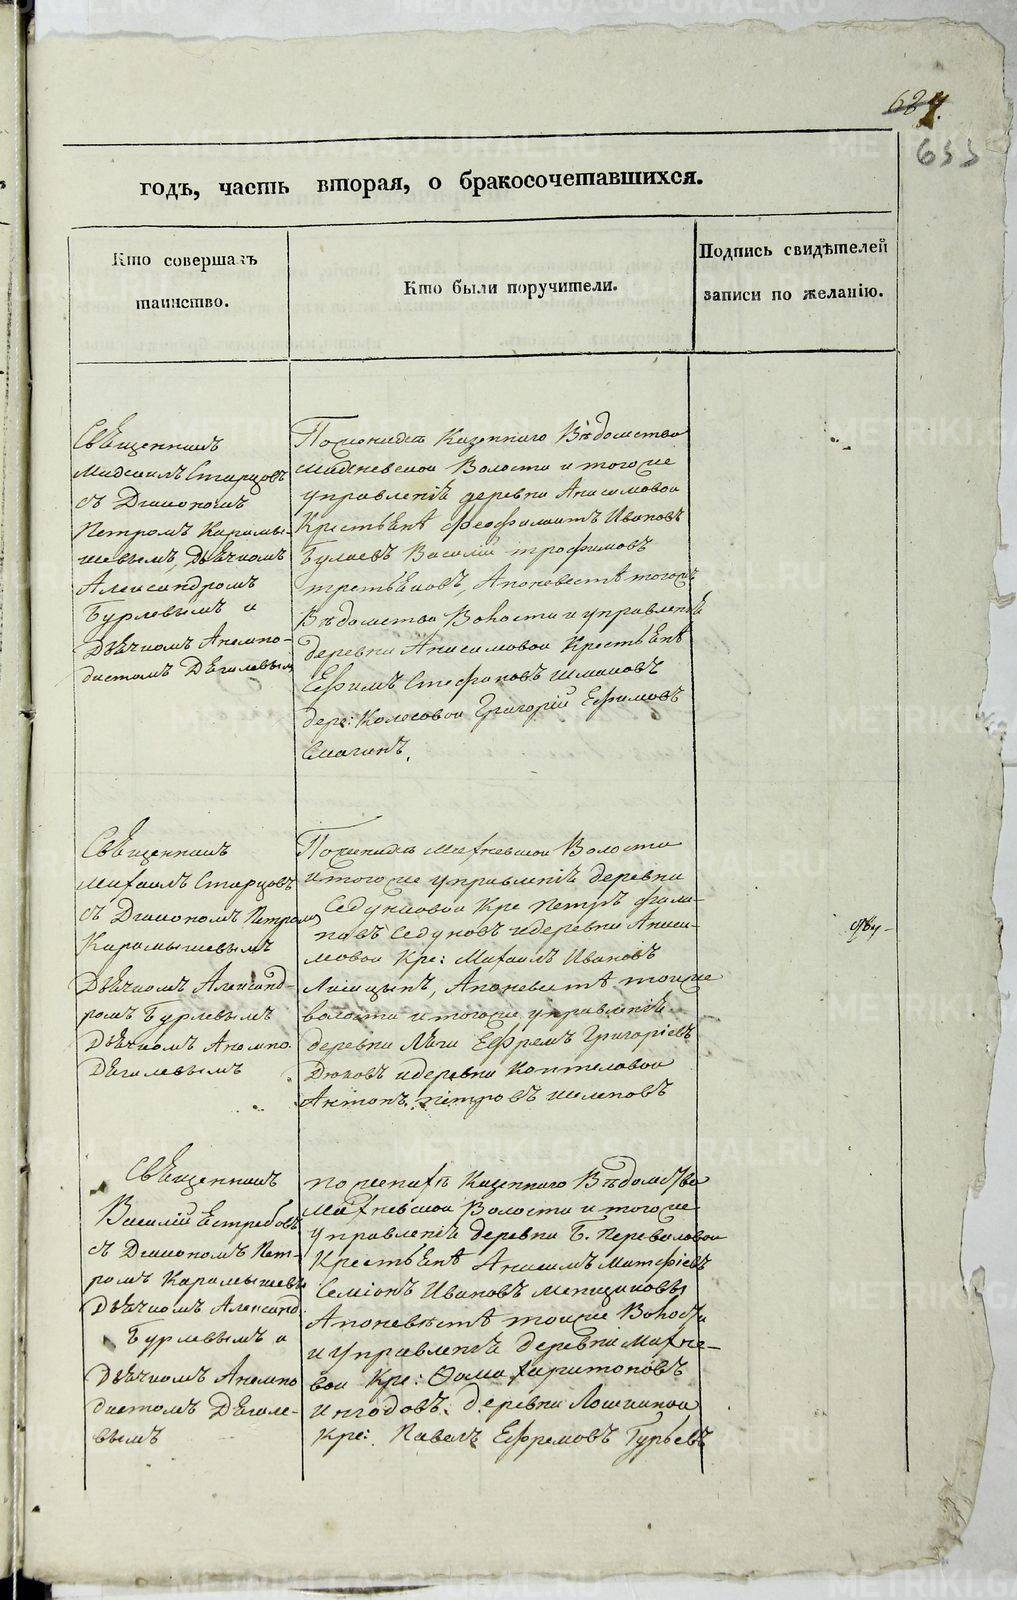 687.
633
годъ, часть вторая, о бракосочетавшихся.
Кто совершалъ
таинство.
Кто были поручители.
Подпись свидѣтелей
записи по желанію.
Священникъ
Михаилъ Старцовъ
съ Діакономъ
Петромъ Карамы-
шевымъ, Дьячкомъ
Александромъ
Бурлевымъ и
Дьячкомъ Анемпо-
дистомъ Дягилевым
По женихѣ Казеннаго Вѣдомства
Махневской Волости и того же
управленія деревни Анисимовой
Крестьяне Феофилактъ Ивановъ
Булаевъ Василій Трофимовъ
Третьяковъ, А по невестѣ того жъ
Вѣдомства Волости и управленія
деревни Анисимовой Крестьяне
Ефимъ Стефановъ Шмаковъ
дер: Колесовой Григорій Ефимовъ
Смагинъ.
Священникъ
Михаилъ Старцовъ
съ Діакономъ Петромъ
Карамышевымъ
Дьячкомъ Александ-
ромъ Бурлевымъ
Дьячкомъ Анемпо.
Дягилевымъ
По женихѣ Махневской Волости
и того же управленія деревни
Седунковой Кре Петръ Фили-
повъ Седуновъ и деревни Аниси-
мовой Кре: Михаилъ Ивановъ
Лисицынъ, А по невестѣ той же
волости и того же управленія
деревни Ефремъ Григоріевъ
Дюковъ и деревни Коптеловой
Антонъ Петровъ Шелеповъ
Священникъ
Василій Ястребовъ
съ Діакономъ Пет-
ромъ Карамышевы
Дьячкомъ Александ.
Бурлевымъ и
Дьячкомъ Анемпо
дистомъ Дягиле-
вымъ
по женихѣ Казеннаго Вѣдомства
Махневской Волости и того же
управленія деревни Б. Переваловой
Крестьяне Анисимъ Матфіевъ
Семіонъ Ивановъ Менщиковы
А по невѣстѣ той же Волости
и Управленія деревни Махне-
вой Кре: Фома Харитоновъ
деревни
Кре: Павелъ Ефремовъ Гурьевъ